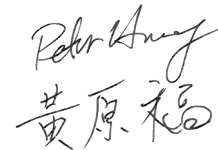 Peter Huang
黃原福